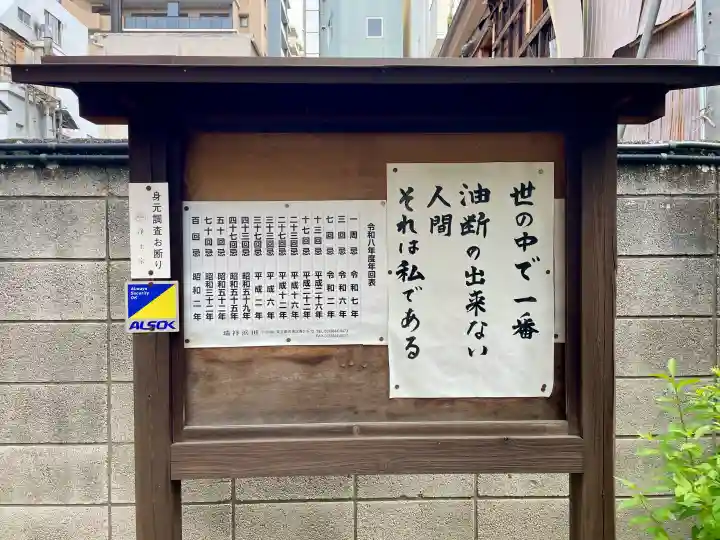 世の中で一番
油断の出来ない
人間
それは私である
令和八年度年回表
一周忌 令和七年
三回忌 令和六年
七回忌 令和二年
十三回忌 平成二十六年
十七回忌 平成二十二年
二十三回忌 平成十六年
二十七回忌 平成十二年
三十三回忌 平成六年
三十七回忌 平成二年
四十三回忌 昭和五十九年
四十七回忌 昭和五十五年
五十回忌 昭和五十二年
七十回忌 昭和三十二年
百回忌 昭和二年
身元調査お断り
浄土宗
Always
Security
OK
ALSOK